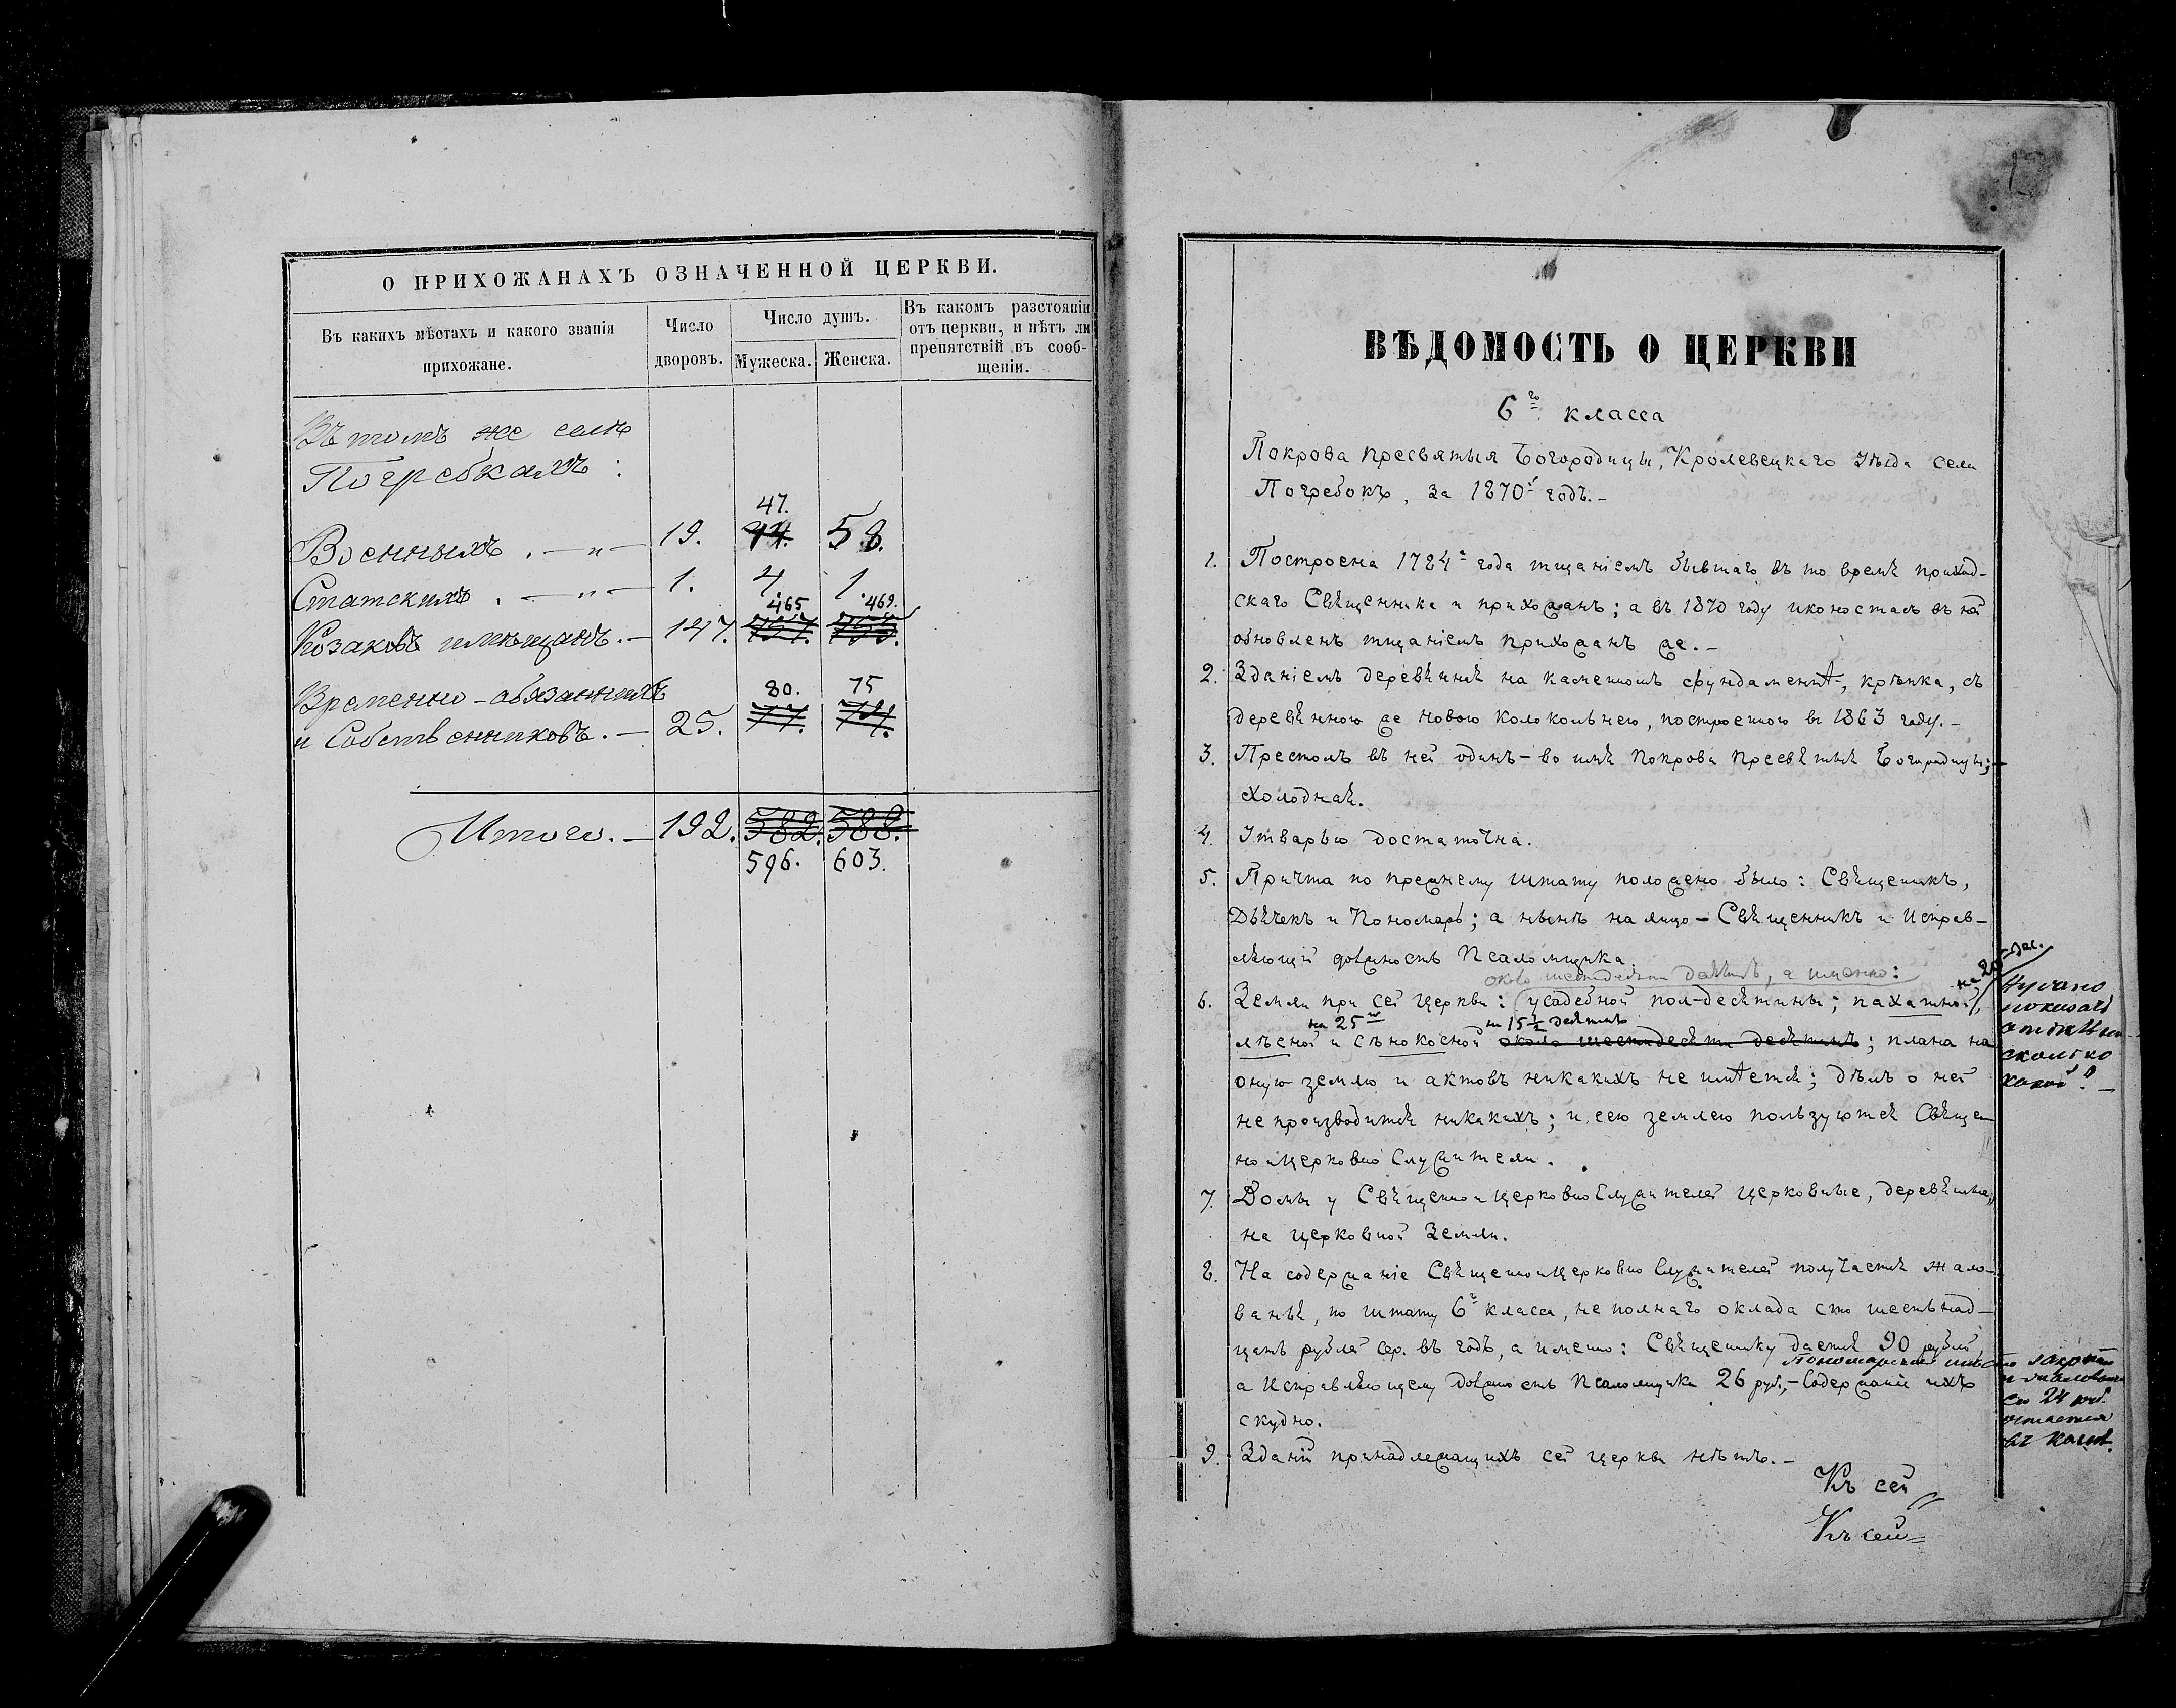 О ПРИХОЖАНАХЪ ОЗНАЧЕННОЙ ЦЕРКВИ.
Въ какихъ мѣстахъ и какого званія прихожане.
Число дворовъ.
Число душъ.
Мужеска.
Женска.
Въ какомъ разстояніи
отъ церкви, и нѣтъ ли
препятствій въ сооб-
щеніи.
Въ томъ же селѣ
Погребкахъ:
47.
Военныхъ . — „ — 19. 44. 58.
Статскихъ . — „ — 1. 4. 1.
465. 469.
Козаковъ и мѣщанъ. — 147.
80. 75
Временно-обязанныхъ
и Собственниковъ. — 25. 77. 74.
Итого. — 192. 582. 588.
596. 603.
ВѢДОМОСТЬ О ЦЕРКВИ
6го класса
Покрова Пресвятыя Богородицы, Кролевецкаго Уѣзда села
Погребокъ, за 1870й годъ. –
1. Построена 1724го года тщаніемъ бывшаго въ то время приход-
скаго Священника и прихожанъ; а въ 1870 году иконостасъ въ ней
обновленъ тщаніемъ прихожанъ же. –
2. Зданіемъ деревянная на каменномъ фундаментѣ, крѣпка, съ
деревянною же новою колокольнею, построенною въ 1863 году. –
3. Престолъ въ ней одинъ – во имя Покрова Пресвятыя Богородицы;
холодная.
4. Утварью достаточна.
5. Причта по прежнему штату положено было: Священникъ,
Дьячекъ и Пономарь; а нынѣ на лицо – Священникъ и Исправ-
ляющій должность Псаломщика.
около шестидесяти десятинъ, а именно:
на 20 дес.
6. Земли при сей церкви: усадебной пол-десятины; пахатной,
на 25 на 15 ½ десятинъ
лѣсной и сѣнокосной около шестидесяти десятинъ; плана на
оную землю и актовъ никакихъ не имѣется; дѣлъ о ней
не производится никакихъ; и сею землею пользуются Священ-
но и церковно Служители.
Нужно
показать
отдѣльно
сколько
какой? –
7. Домы у Священно и церковно Служителей церковные, деревянные,
на церковной Земли.
8. На содержаніе Священно и церковно Служителей получается жало-
ванья, по штату 6го класса, не полнаго оклада сто шестьнад-
цать рублей сер. въ годъ, а именно: Священнику дается 90 рублей,
Пономарское мѣсто закрыто
а Исправляющему должность Псаломщика 26 руб. – Содержаніе ихъ
скудно.
и жалованье
его 24 руб.
остается
въ казнѣ.
9. Зданій принадлежащихъ сей церкви нѣтъ. –
Къ сей
Къ сей